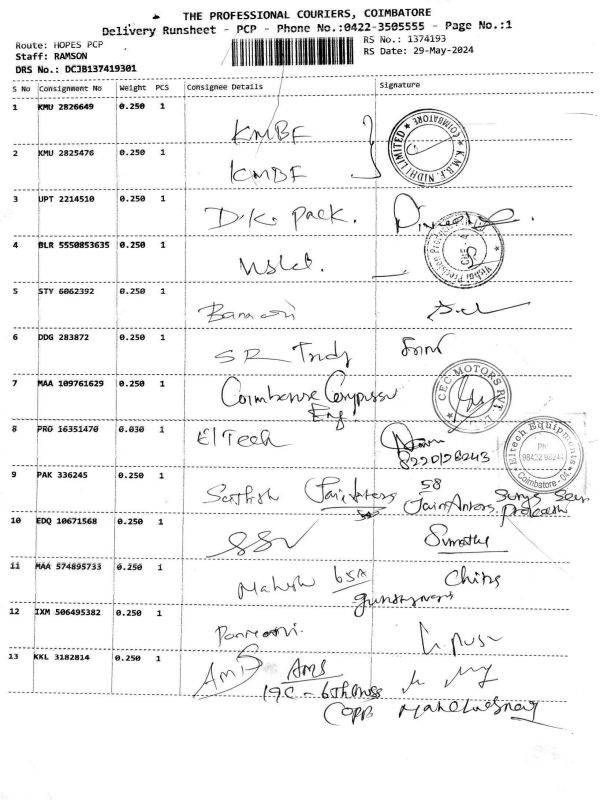 THE PROFESSIONAL COURIERS, COIMBATORE
Delivery Runsheet - PCP - Phone No.:0422-3505555 - Page No.:1
Route: HOPES PCP
RS No.: 1374193
Staff: RAMSON
RS Date: 29-May-2024
DRS No.: DCJB137419301
S No Consignment No Weight PCS Consignee Details Signature
1 KMU 2826649 0.250 1
KMBF
K.M.B.F. NIDHI LIMITED COIMBATORE
2 KMU 2825476 0.250 1
KMBF
3 UPT 2214510 0.250 1
D.K. Pack.
4 BLR 5550853635 0.250 1
5 STY 6062392 0.250 1
6 DDG 283872 0.250 1
SR
7 MAA 109761629 0.250 1
CEC MOTORS PVT.
Coimbatore
8 PRO 16351470 0.030 1
ElTech
Eltech Equipments
Ph:
98422 98244
Coimbatore - 04
9 PAK 336245 0.250 1
Sathish
58
10 EDQ 10671568 0.250 1
SSV
Sumathi
11 MAA 574895733 0.250 1
Mahesh 65A
Chitra
12 IXM 506495382 0.250 1
13 KKL 3182814 0.250 1
AMS
19C - 6th